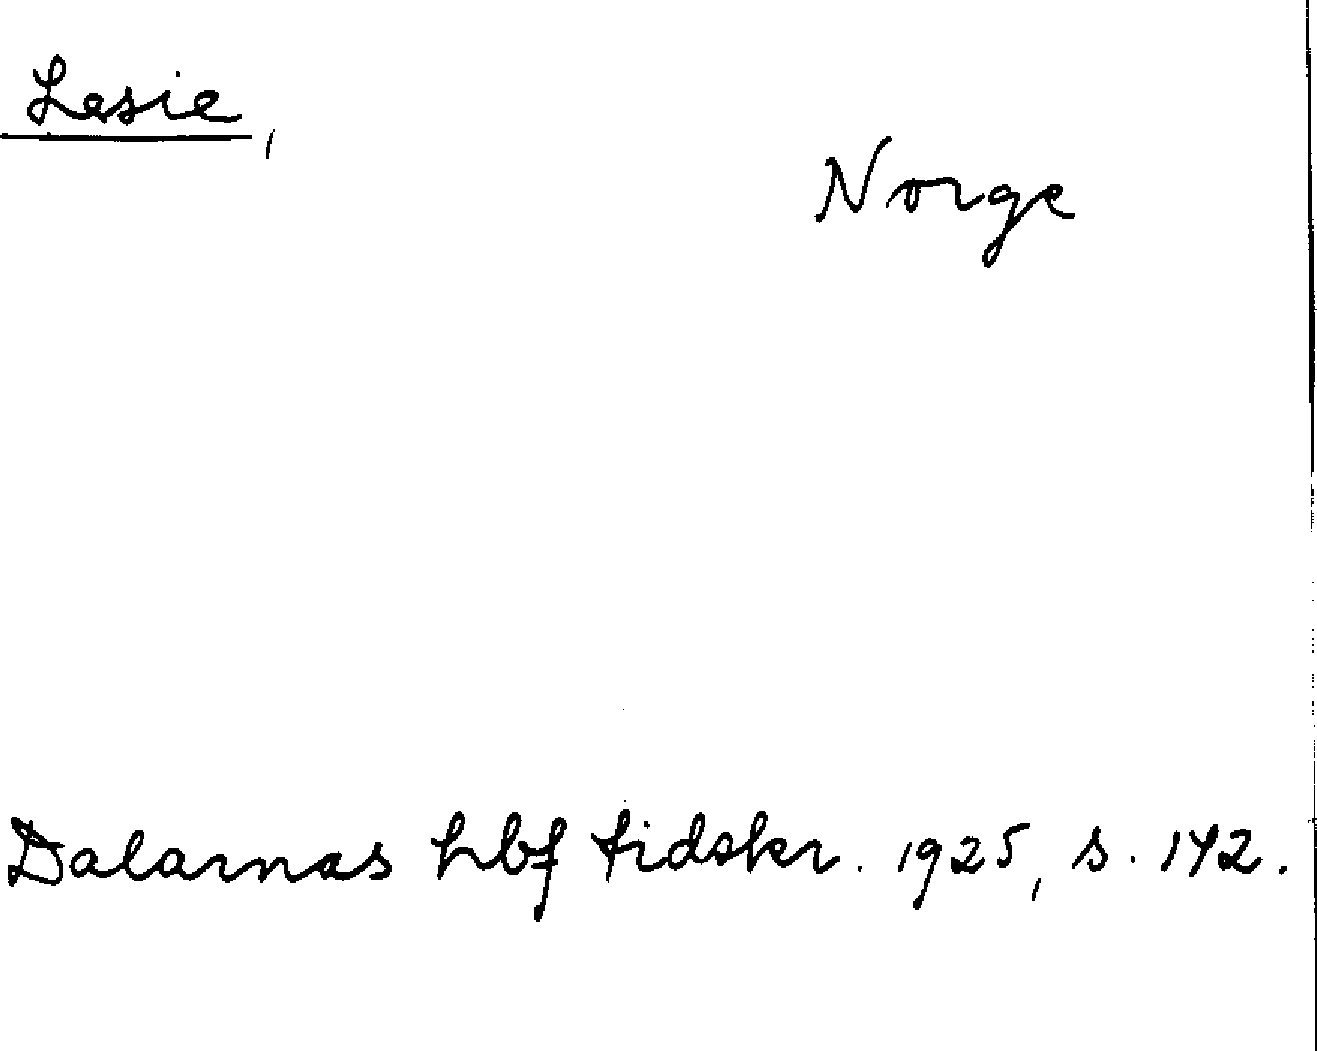 Lesie,
Norge
Dalarnas hbf tidskr. 1925, s. 142.